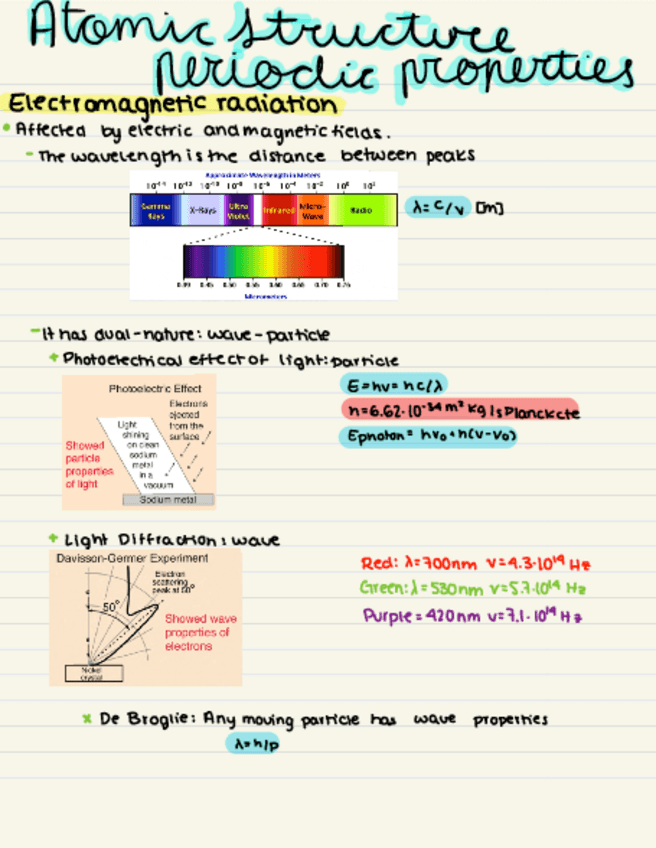 Atomic structure
periodic properties
Electromagnetic radiation
• Affected by electric and magnetic fields.
- The wavelength is the distance between peaks
Approximate Wavelength in Meters
10⁻¹⁴ 10⁻¹² 10⁻¹⁰ 10⁻⁸ 10⁻⁶ 10⁻⁴ 10⁻² 10⁰ 10²
Gamma Rays X-Rays Ultra Violet Infrared Micro-Wave Radio
λ= c/v [m]
0.39 0.45 0.50 0.55 0.60 0.65 0.70 0.76
Micrometers
- It has dual-nature: wave-particle
+ Photoelectrical effect of light: particle
Photoelectric Effect
Electrons
ejected
from the
surface
Light
shining
on clean
sodium
metal
in a
vacuum
Showed
particle
properties
of light
Sodium metal
E=hv= hc/λ
h=6.62·10⁻³⁴ m² kg/s Planck cte
Ephoton= hv₀+h(v-v₀)
+ Light Diffraction: wave
Davisson-Germer Experiment
Electron
scattering
peak at 50°
50°
Showed wave
properties of
electrons
Nickel
crystal
Red: λ=700nm v=4.3·10¹⁴ Hz
Green: λ=530nm v=5.7·10¹⁴ Hz
Purple=420nm v=7.1·10¹⁴ Hz
x De Broglie: Any moving particle has wave properties
λ=h/p